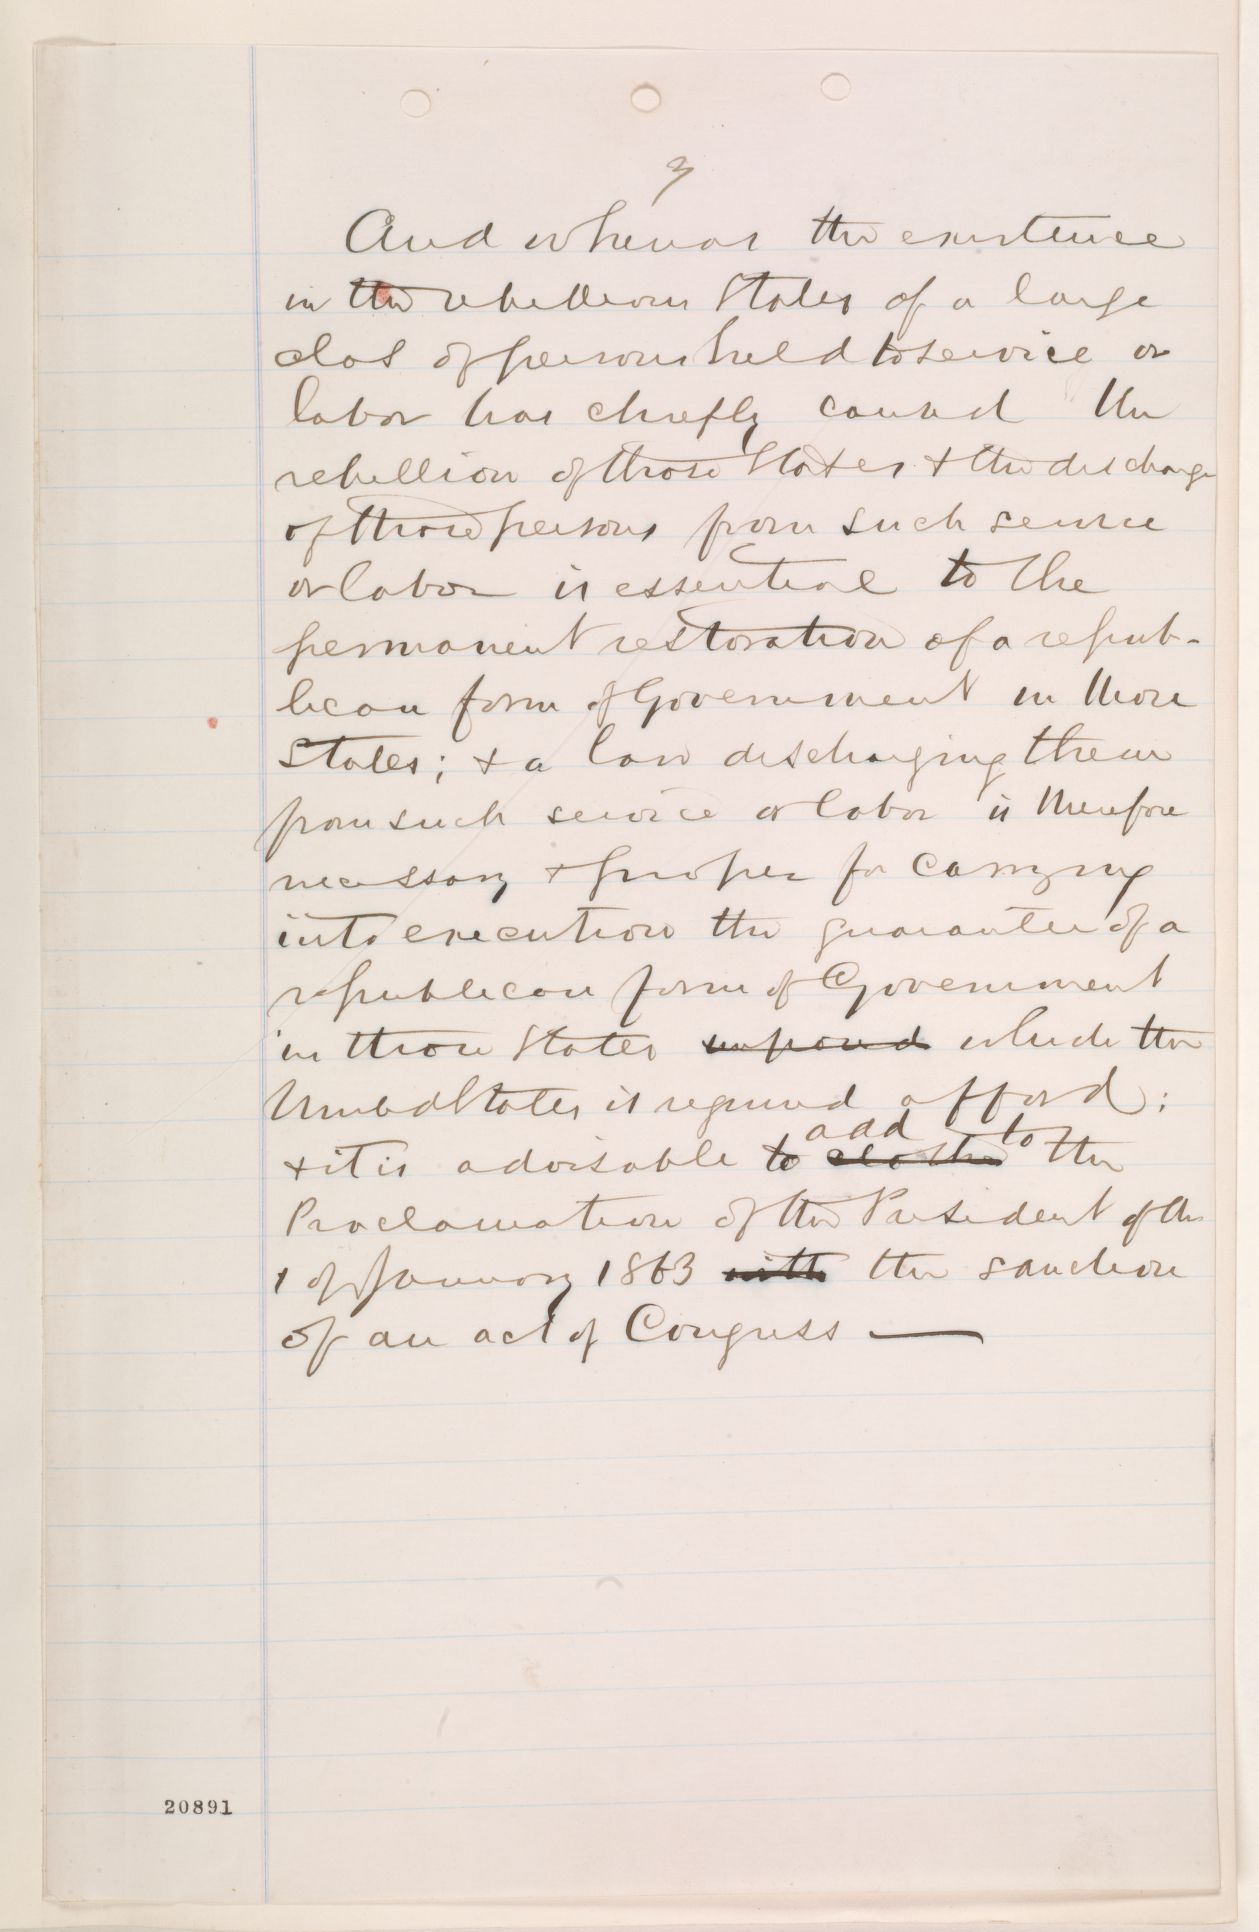 3
And whereas the existence
in the rebellious States of a large
class of persons held to service or
labor has chiefly caused the
rebellion of those States & the discharge
of those persons from such service
or labor is essential to the
permanent restoration of a repub-
lican form of Government in those
States; & a law discharging them
from such service or labor is therefore
necessary & proper for carrying
into execution the guarantee of a
republican form of Government
in those States imposed which the
United States is required afford;
add to
& it is advisable to clothe the
Proclamation of the President of the
1 of January 1863 with the sanction
of an act of Congress —
20891